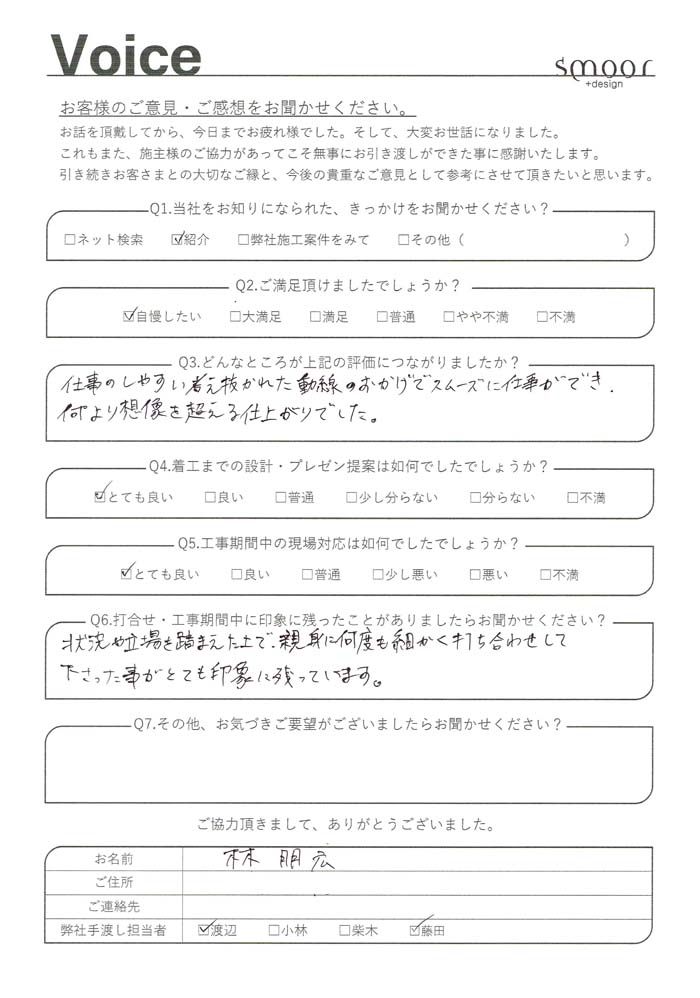 Voice
smoor
+design
お客様のご意見・ご感想をお聞かせください。
お話を頂戴してから、今日までお疲れ様でした。そして、大変お世話になりました。
これもまた、施主様のご協力があってこそ無事にお引き渡しができた事に感謝いたします。
引き続きお客さまとの大切なご縁と、今後の貴重なご意見として参考にさせて頂きたいと思います。
Q1.当社をお知りになられた、きっかけをお聞かせください？
□ネット検索 ☑紹介 □弊社施工案件をみて □その他（ ）
Q2.ご満足頂けましたでしょうか？
☑自慢したい □大満足 □満足 □普通 □やや不満 □不満
Q3.どんなところが上記の評価につながりましたか？
仕事のしやすい考え抜かれた動線のおかげでスムーズに仕事ができ、
何より想像を超える仕上がりでした。
Q4.着工までの設計・プレゼン提案は如何でしたでしょうか？
☑とても良い □良い □普通 □少し分らない □分らない □不満
Q5.工事期間中の現場対応は如何でしたでしょうか？
☑とても良い □良い □普通 □少し悪い □悪い □不満
Q6.打合せ・工事期間中に印象に残ったことがありましたらお聞かせください？
状況や立場を踏まえた上で、親身に何度も細かく打ち合わせして
下さった事がとても印象に残っています。
Q7.その他、お気づきご要望がございましたらお聞かせください？
ご協力頂きまして、ありがとうございました。
お名前 林 朋広
ご住所
ご連絡先
弊社手渡し担当者 ☑渡辺 □小林 □柴木 ☑藤田